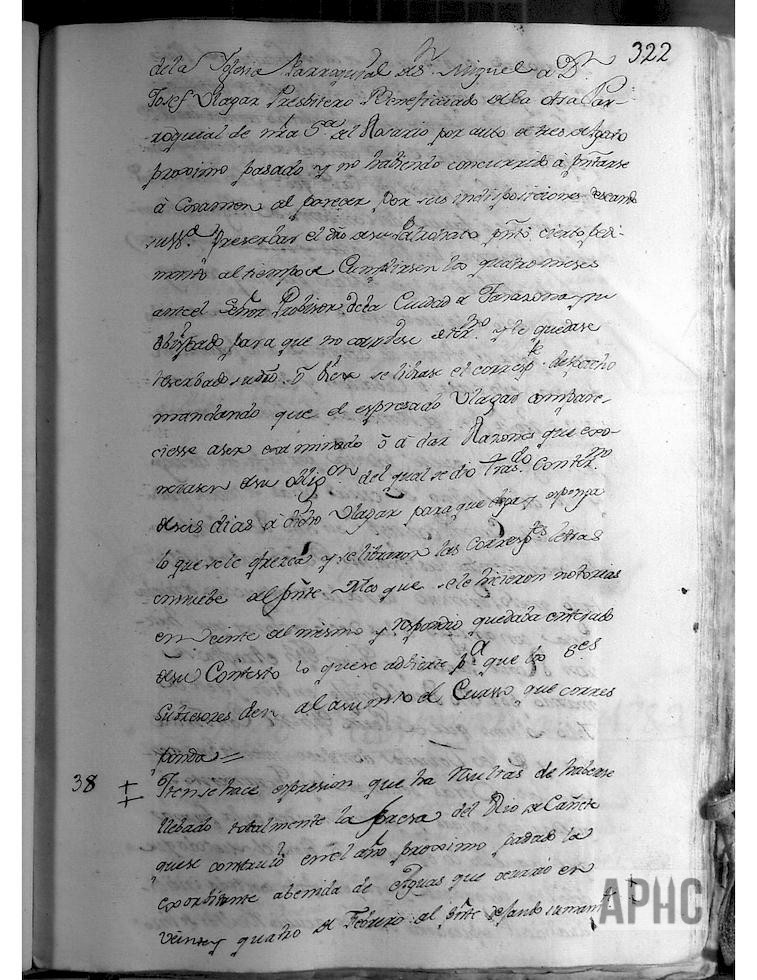 322
dela Iglesia Parroquial de Sn. Miguel a Dn.
Josef Vlagar Presbitero Beneficiado de la dha Par-
roquial de nra Sra del Rosario por auto de tres de
proximo pasado y no habiendo concurrido à pntarse
à Examen al parecer por sus indisposiciones deseando
Preserbar el dro de su Patronato pntó cierto pedi-
mento al tiempo de Cumplirsen los quatro meses
ante el Señor Probisor dela Ciudad de Tarazona y su
obispado para que no corriese el termo. y le quedase
reserbado su dro. ò bien se librase el correspte. despacho
mandando que el espresado Vlagar compare-
ciesse a ser examinado ò à dar Razones que
de su oblign. del qual se dio trasdo. con termo
de seis dias à dicho Vlagar para que dige y esponga
lo que se le ofrezca y se libraron las Correspte letras
en nuebe del pnte Mes que se le hicieron notorias
en veinte del mismo y respondio quedaba enterado
de su Contesto lo que se adbierte pa. que los
Subcesores den al asumto el Curso que corres
ponda =
38 ‡ Iten se hace espresion que ha resultas de haberse
llebado totalmente la presa del Rio de Cañete
que se construió en el año proximo pasado la
exorbitante abenida de Aguas que ocurrió en
veinte y quatro de Febrero del pnte
APHC